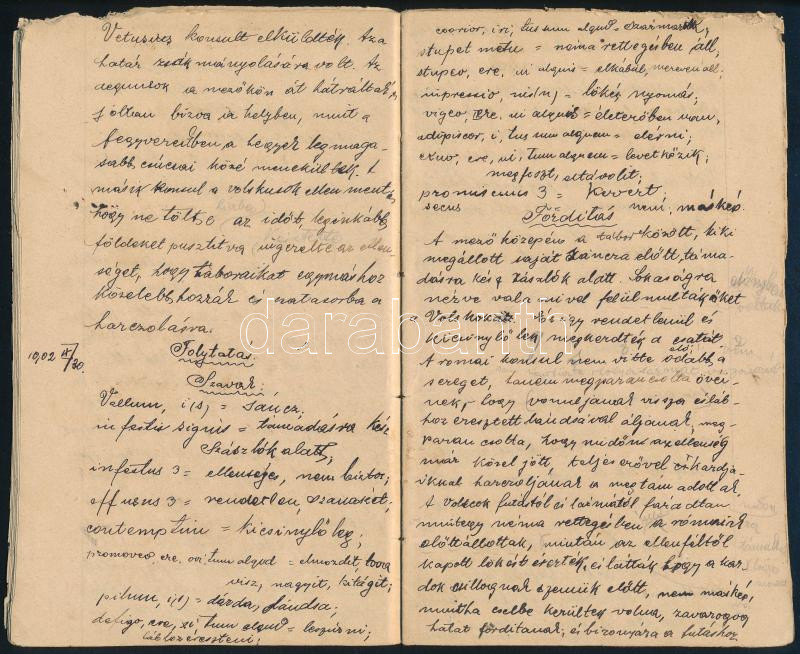 Vetusius konsult elküldték. Az a
határ zsákmányolására volt. Az
aequusok a mezőkön át hátráltak és
jobban bízva a helyben, mint a
fegyverekben, a hegyek legmaga-
sabb csúcsai közé menekültek. A
másik konsul a volskusok ellen ment és
hogy ne töltse az időt, leginkább
földeket pusztítva ingerelte az ellen-
séget, hogy táboraikat egymáshoz
közelebb hozzák és csatasorba a
harczolásra.
1902 30.
Folytatás.
Szavak:
Vallum, i (s) = sáncz,
infestis signis = támadásra kész
zászlók alatt;
infestus 3 = ellenséges, nem biztos;
effusus 3 = rendetlen, szanaszét;
contemptim = kicsinylőleg;
promoveo ere, vi tum alqud = elmozdít, tova
visz, nagyít, kitágít;
pilum, i (s) = dárda, lándsa;
defigo, ere, xi tum alqud = leszúrni;
lábhoz ereszteni;
coorior, iri, tus sum
stupet metu = néma rettegésben áll,
stupeo, ere, ui alquis = elkábul, mereven áll;
impressio, nis (n) = lökés nyomás;
vigeo, ere, ui alquis = életerőben van,
adipiscor, i, tus sum alquem = elérni;
exuo, ere, ui, tum alquem = levetkőzik,
megfoszt, eltávolít;
promiscuus 3 = kevert.
secus nem, máskép.
Fordítás
A mező közepén a tábor között, kiki
megállott saját sáncza előtt, táma-
dásra kész zászlók alatt. Sokaságra
nézve valamivel felülmulták őket
a Volskok. És így rendetlenül és
kicsinylőleg megkezdték a csatát.
A római konsul nem vitte előbb a
sereget, hanem megparancsolta övéi-
nek, hogy vonuljanak vissza és láb-
hoz eresztett lándsával álljanak, meg-
parancsolta, hogy midőn az ellenség
már közel jött, teljes erővel és kardja-
ikkal harczoljanak a megtámadottak.
A Volscok futástól és lármától fáradtan
mintegy néma rettegésben a rómaiak
előtt állottak, miután az ellenféltől
kapott lökést érezték, és látták hogy a kar-
dok csillognak szemük előtt, nem máskép,
mintha cselbe kerültek volna, zavarogva
hátat fordítanak; és bizonyára a futáshoz
darabanth